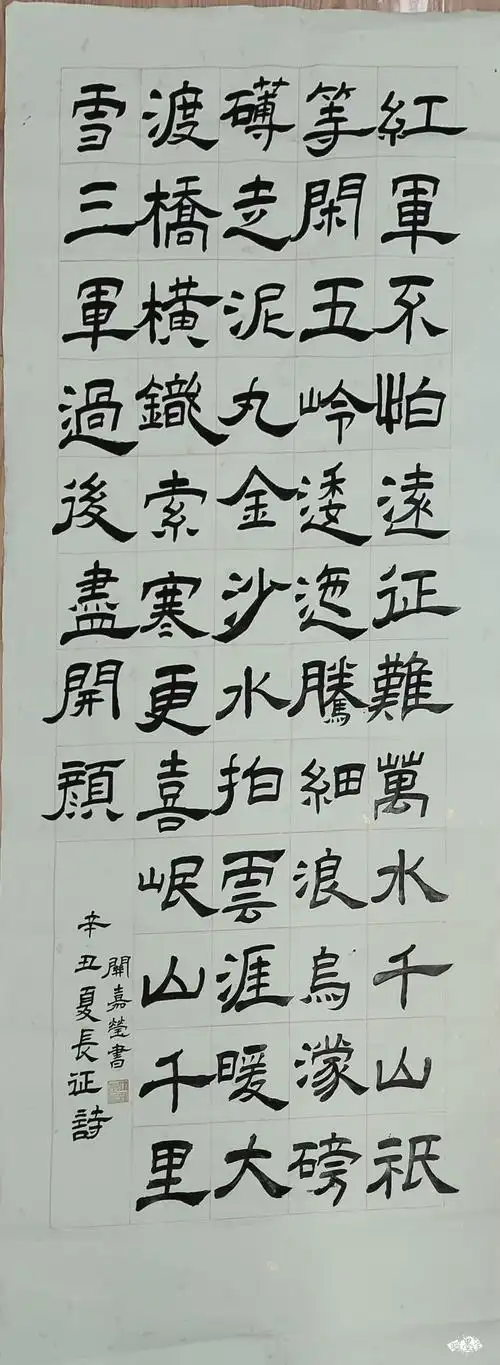 紅軍不怕遠征難萬水千山祇
等閑五岭逶迤騰細浪烏濛磅
礴走泥丸金沙水拍雲涯暖大
渡橋橫鐵索寒更喜岷山千里
雪三軍過後盡開顏
辛丑夏長征詩
關嘉瑩書